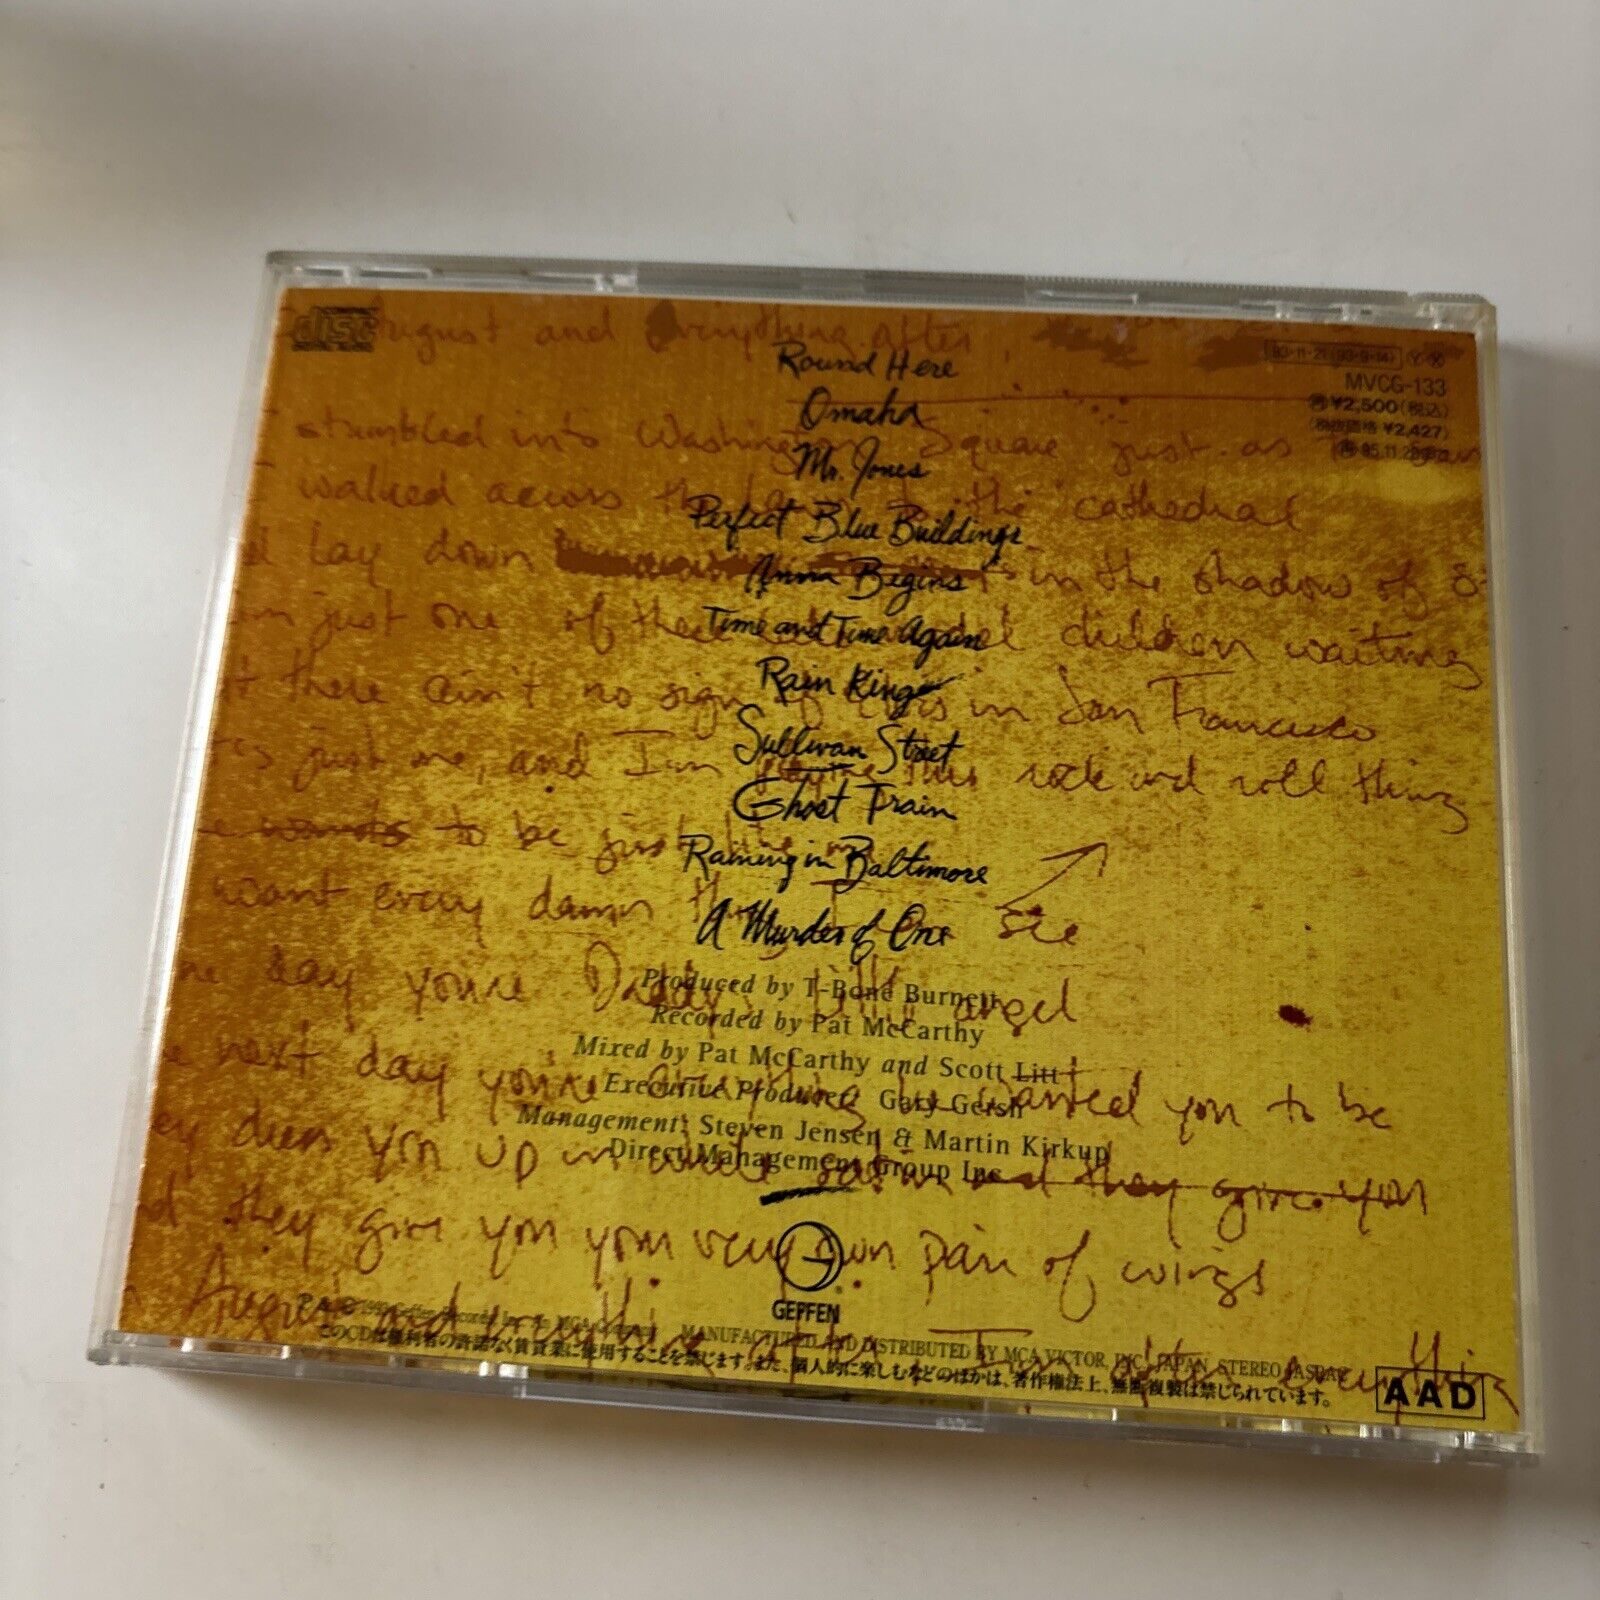 COMPACT
disc
DIGITAL AUDIO
August and everything after,
93·11·21 (93·9·14) Y·X
MVCG-133
¥2,500(税込)
(税抜価格 ¥2,427)
Round Here
Omaha
Mr. Jones
Perfect Blue Buildings
Anna Begins
Time and Time Again
Rain King
Sullivan Street
Ghost Train
Raining in Baltimore
A Murder of One
stumbled into Washington Square just as
I walked across the to the cathedral
lay down in the shadow of
just one of these children waiting
there ain't no sign of in San Francisco
just me, and I'm this rock and roll thing
wants to be just like
want every damn thing I see
day you're Daddy's little angel
next day you're everything he wanted you to be
dress you up in white satin and they give you
they give you your very own pair of wings
August and everything after I'm after everything
Produced by T-Bone Burnett
Recorded by Pat McCarthy
Mixed by Pat McCarthy and Scott Litt
Executive Producer: Gary Gersh
Management: Steven Jensen & Martin Kirkup
Direct Management Group Inc
GEFFEN
MANUFACTURED AND DISTRIBUTED BY MCA VICTOR, INC. JAPAN STEREO JASRAC
このCDは権利者の許諾なく賃貸業に使用することを禁じます。また、個人的に楽しむなどのほかは、著作権法上、無断複製は禁じられています。
AAD